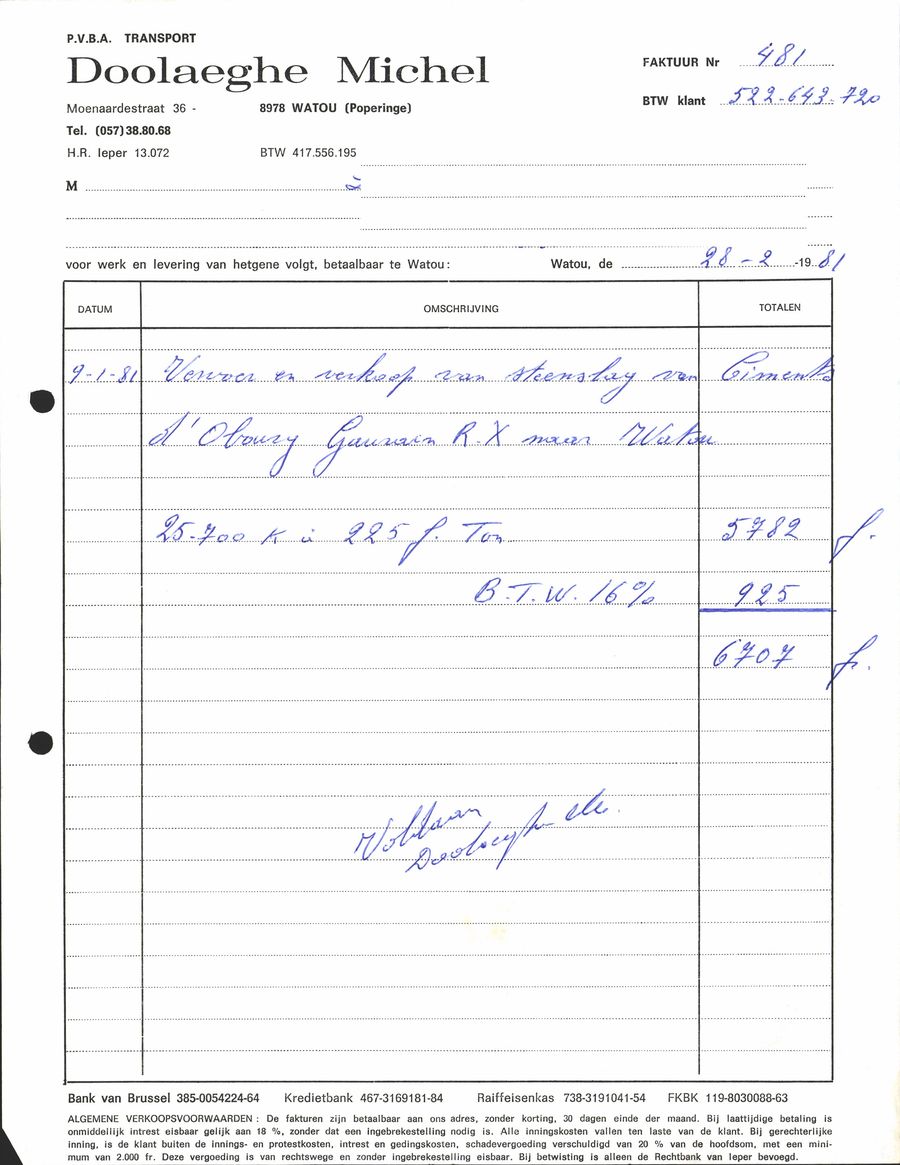 P.V.B.A. TRANSPORT
Doolaeghe Michel
FAKTUUR Nr 481
Moenaardestraat 36 - 8978 WATOU (Poperinge)
BTW klant 522-643-720
Tel. (057) 38.80.68
H.R. Ieper 13.072 BTW 417.556.195
M
voor werk en levering van hetgene volgt, betaalbaar te Watou: Watou, de 28-2-1981
DATUM OMSCHRIJVING TOTALEN
9-1-81 Vervoer en verkoop van steenslag van Ciments
d'Obourg Gaurain R.X naar Watou
25.700 K à 225 f. Ton 5782 f.
B.T.W. 16% 925
6707 f.
Voldaan
Doolaeghe
Bank van Brussel 385-0054224-64 Kredietbank 467-3169181-84 Raiffeisenkas 738-3191041-54 FKBK 119-8030088-63
ALGEMENE VERKOOPSVOORWAARDEN : De fakturen zijn betaalbaar aan ons adres, zonder korting, 30 dagen einde der maand. Bij laattijdige betaling is
onmiddellijk intrest eisbaar gelijk aan 18 %, zonder dat een ingebrekestelling nodig is. Alle inningskosten vallen ten laste van de klant. Bij gerechterlijke
inning, is de klant buiten de innings- en protestkosten, intrest en gedingskosten, schadevergoeding verschuldigd van 20 % van de hoofdsom, met een mini-
mum van 2.000 fr. Deze vergoeding is van rechtswege en zonder ingebrekestelling eisbaar. Bij betwisting is alleen de Rechtbank van Ieper bevoegd.